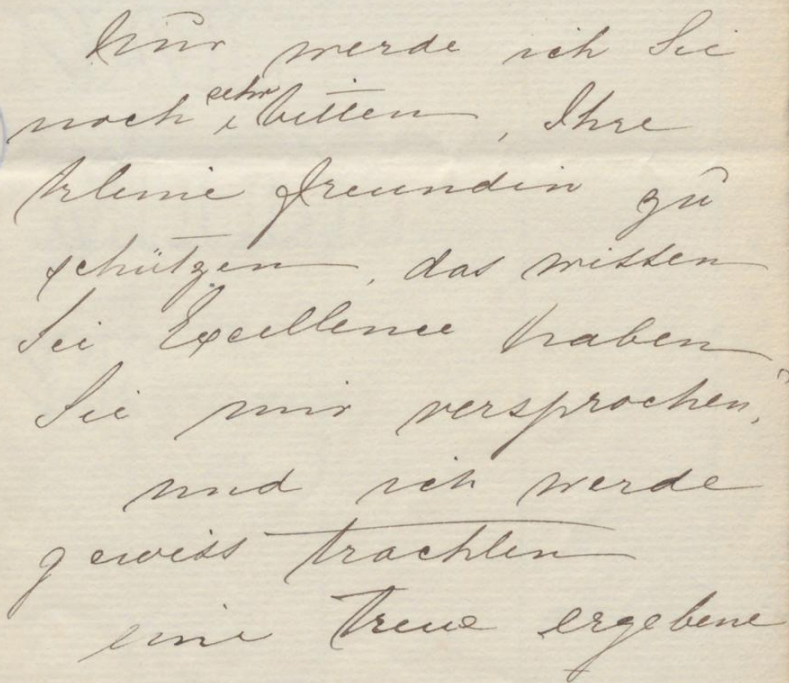 Nur werde ich Sie
noch sehr bitten, Ihre
kleine Freundin zu
schützen, das wissen
Sie Excellence haben
Sie mir versprochen,
und ich werde
gewiss trachten
eine treue ergebene